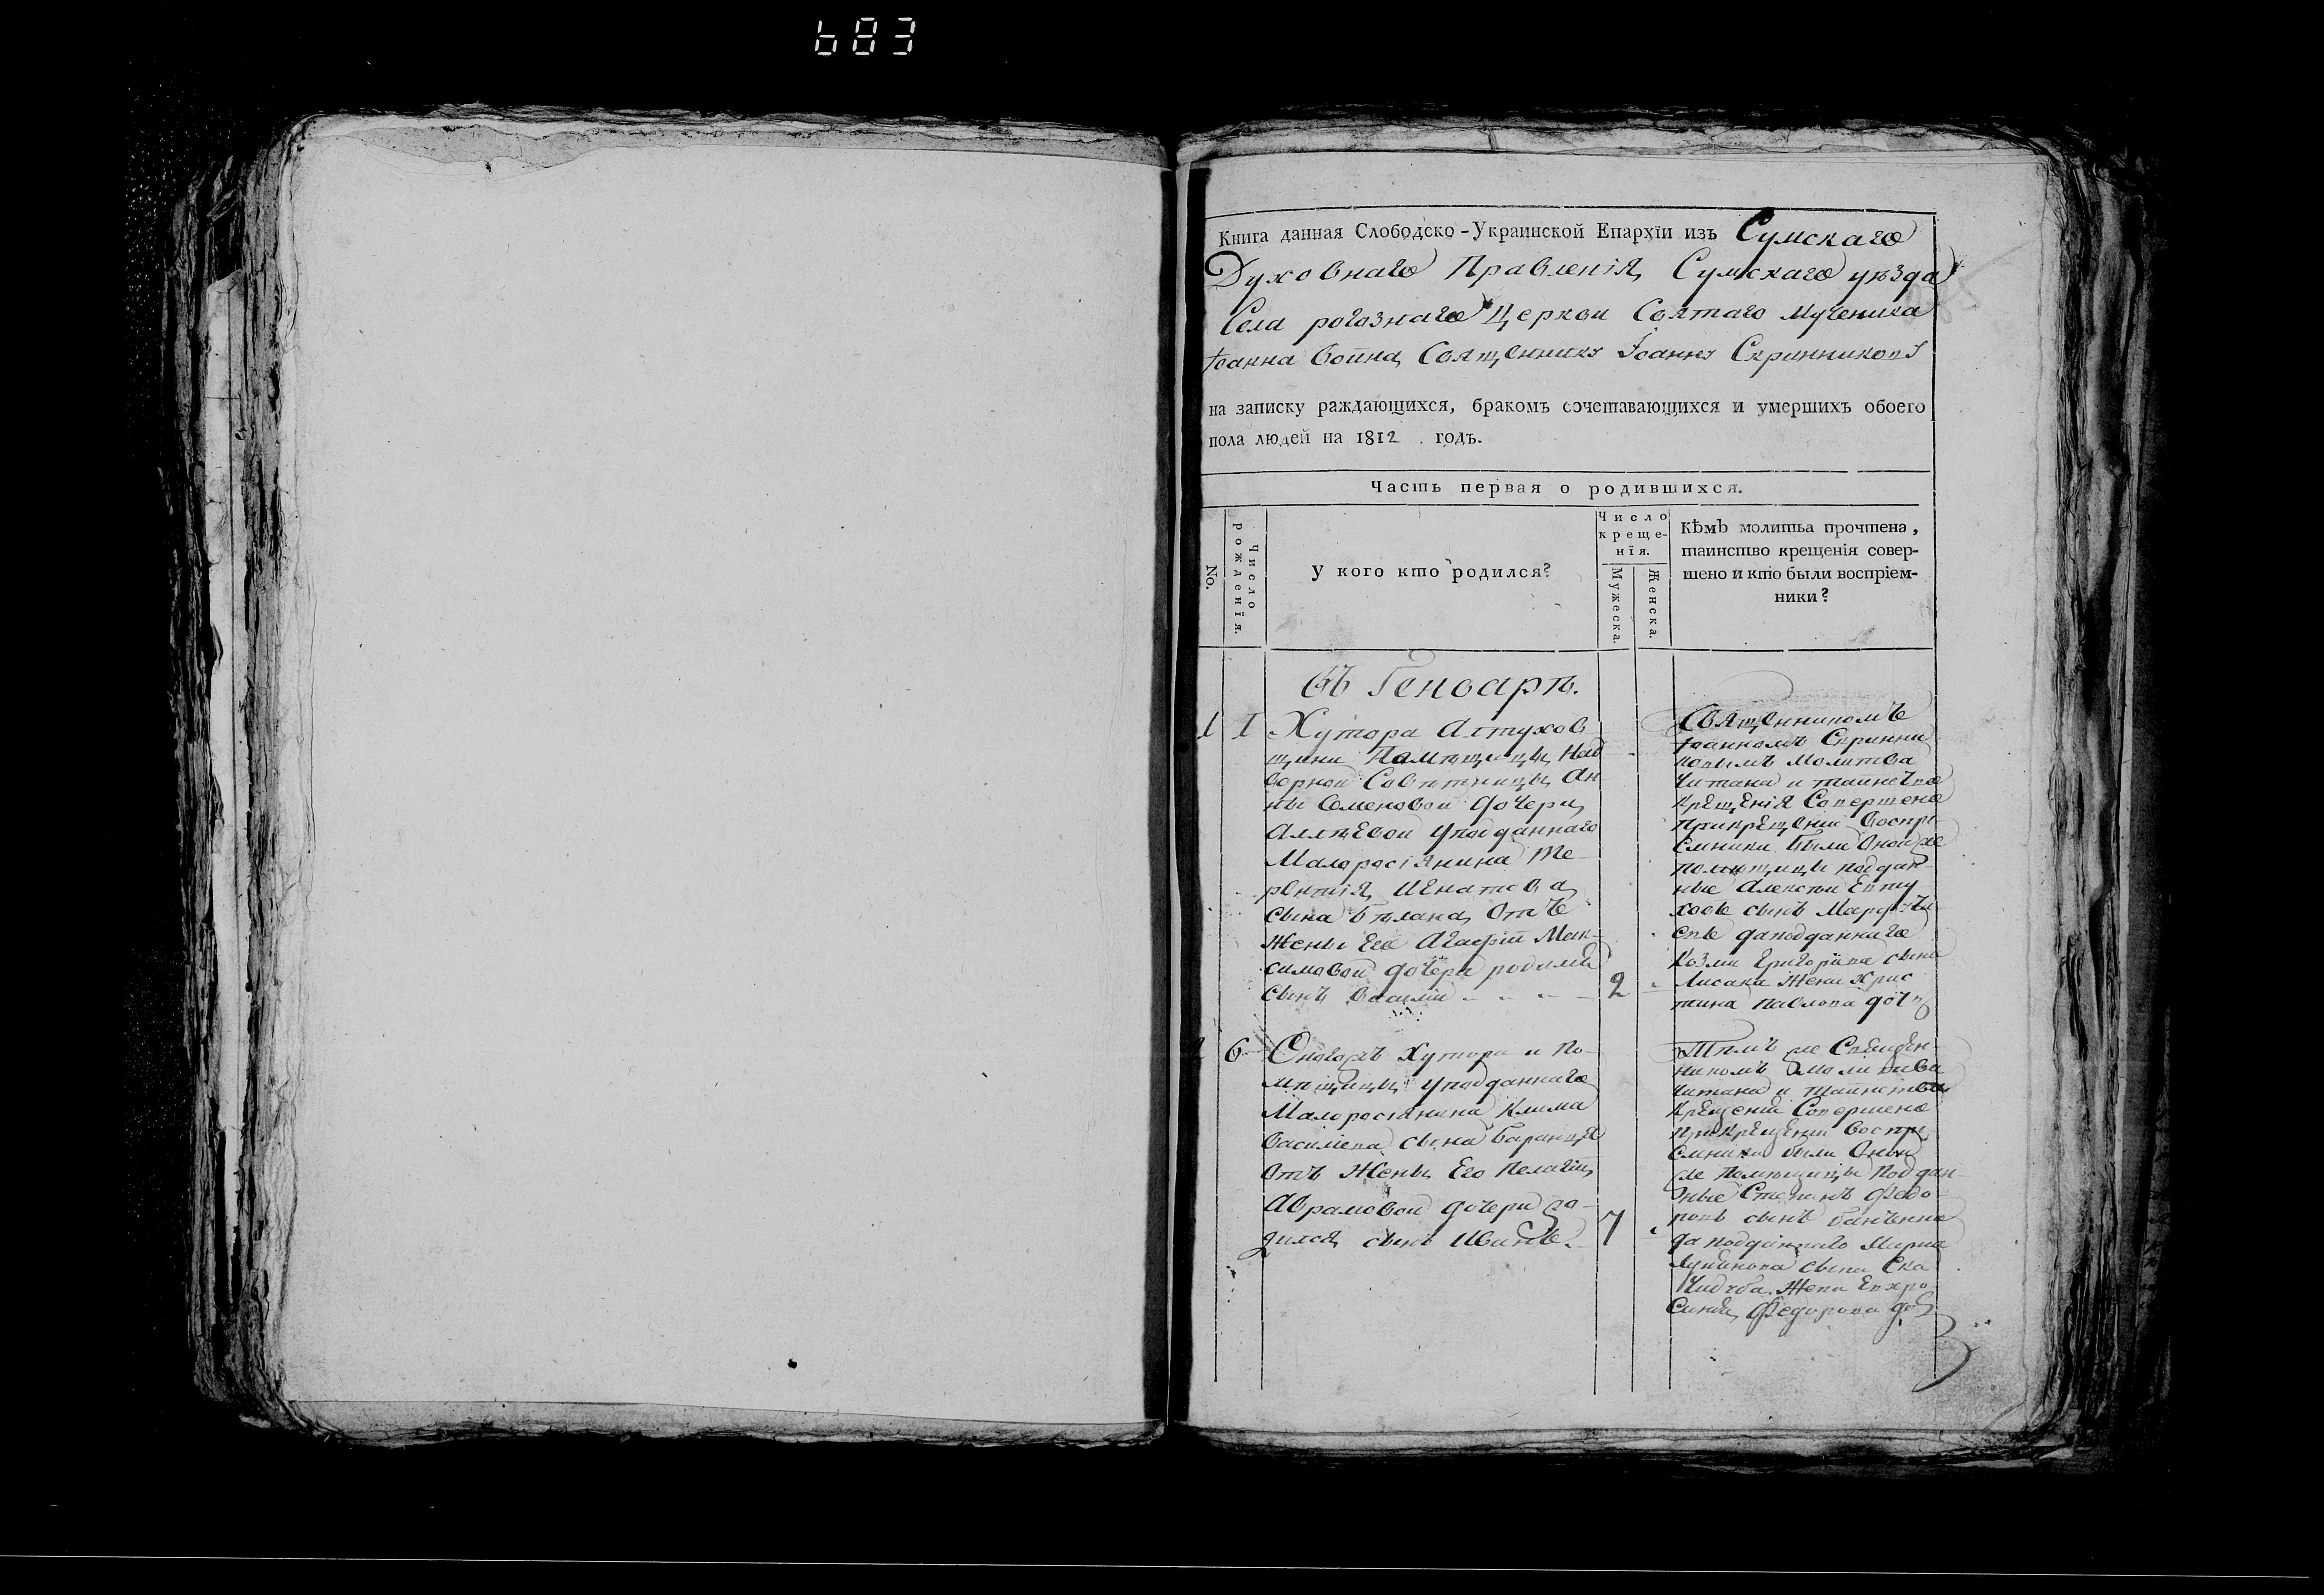 683
Книга данная Слободско-Украинской Епархїи изъ Сумскаго
Духовнаго Правленїя, Сумскаго уѣзда
Села рогознаго Церкви Святаго Мученика
Іоанна воина, Священнику Іоанну Скринникову
на записку раждающихся, бракомъ сочетавающихся и умершихъ обоего
пола людей на 1812 годъ.
Часть первая о родившихся.
No.
Число рожденїя.
У кого кто родился?
Число крещенїя.
Мужеска.
Женска.
Кѣмъ молитва прочтена,
таинство крещенія совер-
шено и кто были воспріем-
ники?
въ Генварѣ.
1 1 Хутора Алтухов
щини Памѣщицы Над
ворной Совѣтницы Ан
ны Семеновой дочери
уподданнаго
Малоросіянина Те-
рентія Игнатова
сына Бѣлана, Отъ
жены Его Агафіи Мак-
симовой дочери
сынъ Василий 2
Священникомъ
Іоанномъ Скринни
ковымъ Молитва
Читана и
крещенія Совершено
прикрещении воспрі
емники были оной же
помѣщицы поддан-
ные Алексѣй Евту
ховъ сынъ
да подданнаго
Козми Григорієва сына
Лисака Жена Хрис
тина Павлова доч
6 Хутора и По-
мѣщицы уподданнаго
Малоросіянина Клима
Василиева сына
Отъ Жены Его Пелагіи,
Аврамовой дочери ро-
дился сынъ Иванъ. 7
Тѣмъ же Священ-
никомъ Молитва
Читана и Таинство
Крещения Совершено
при Крещении воспрі
емники были Оной
же Помѣщицы Поддан-
ные Степанъ Федо-
ровъ сынъ
да подданнаго
сына
Жена Евхро-
Федорова доч